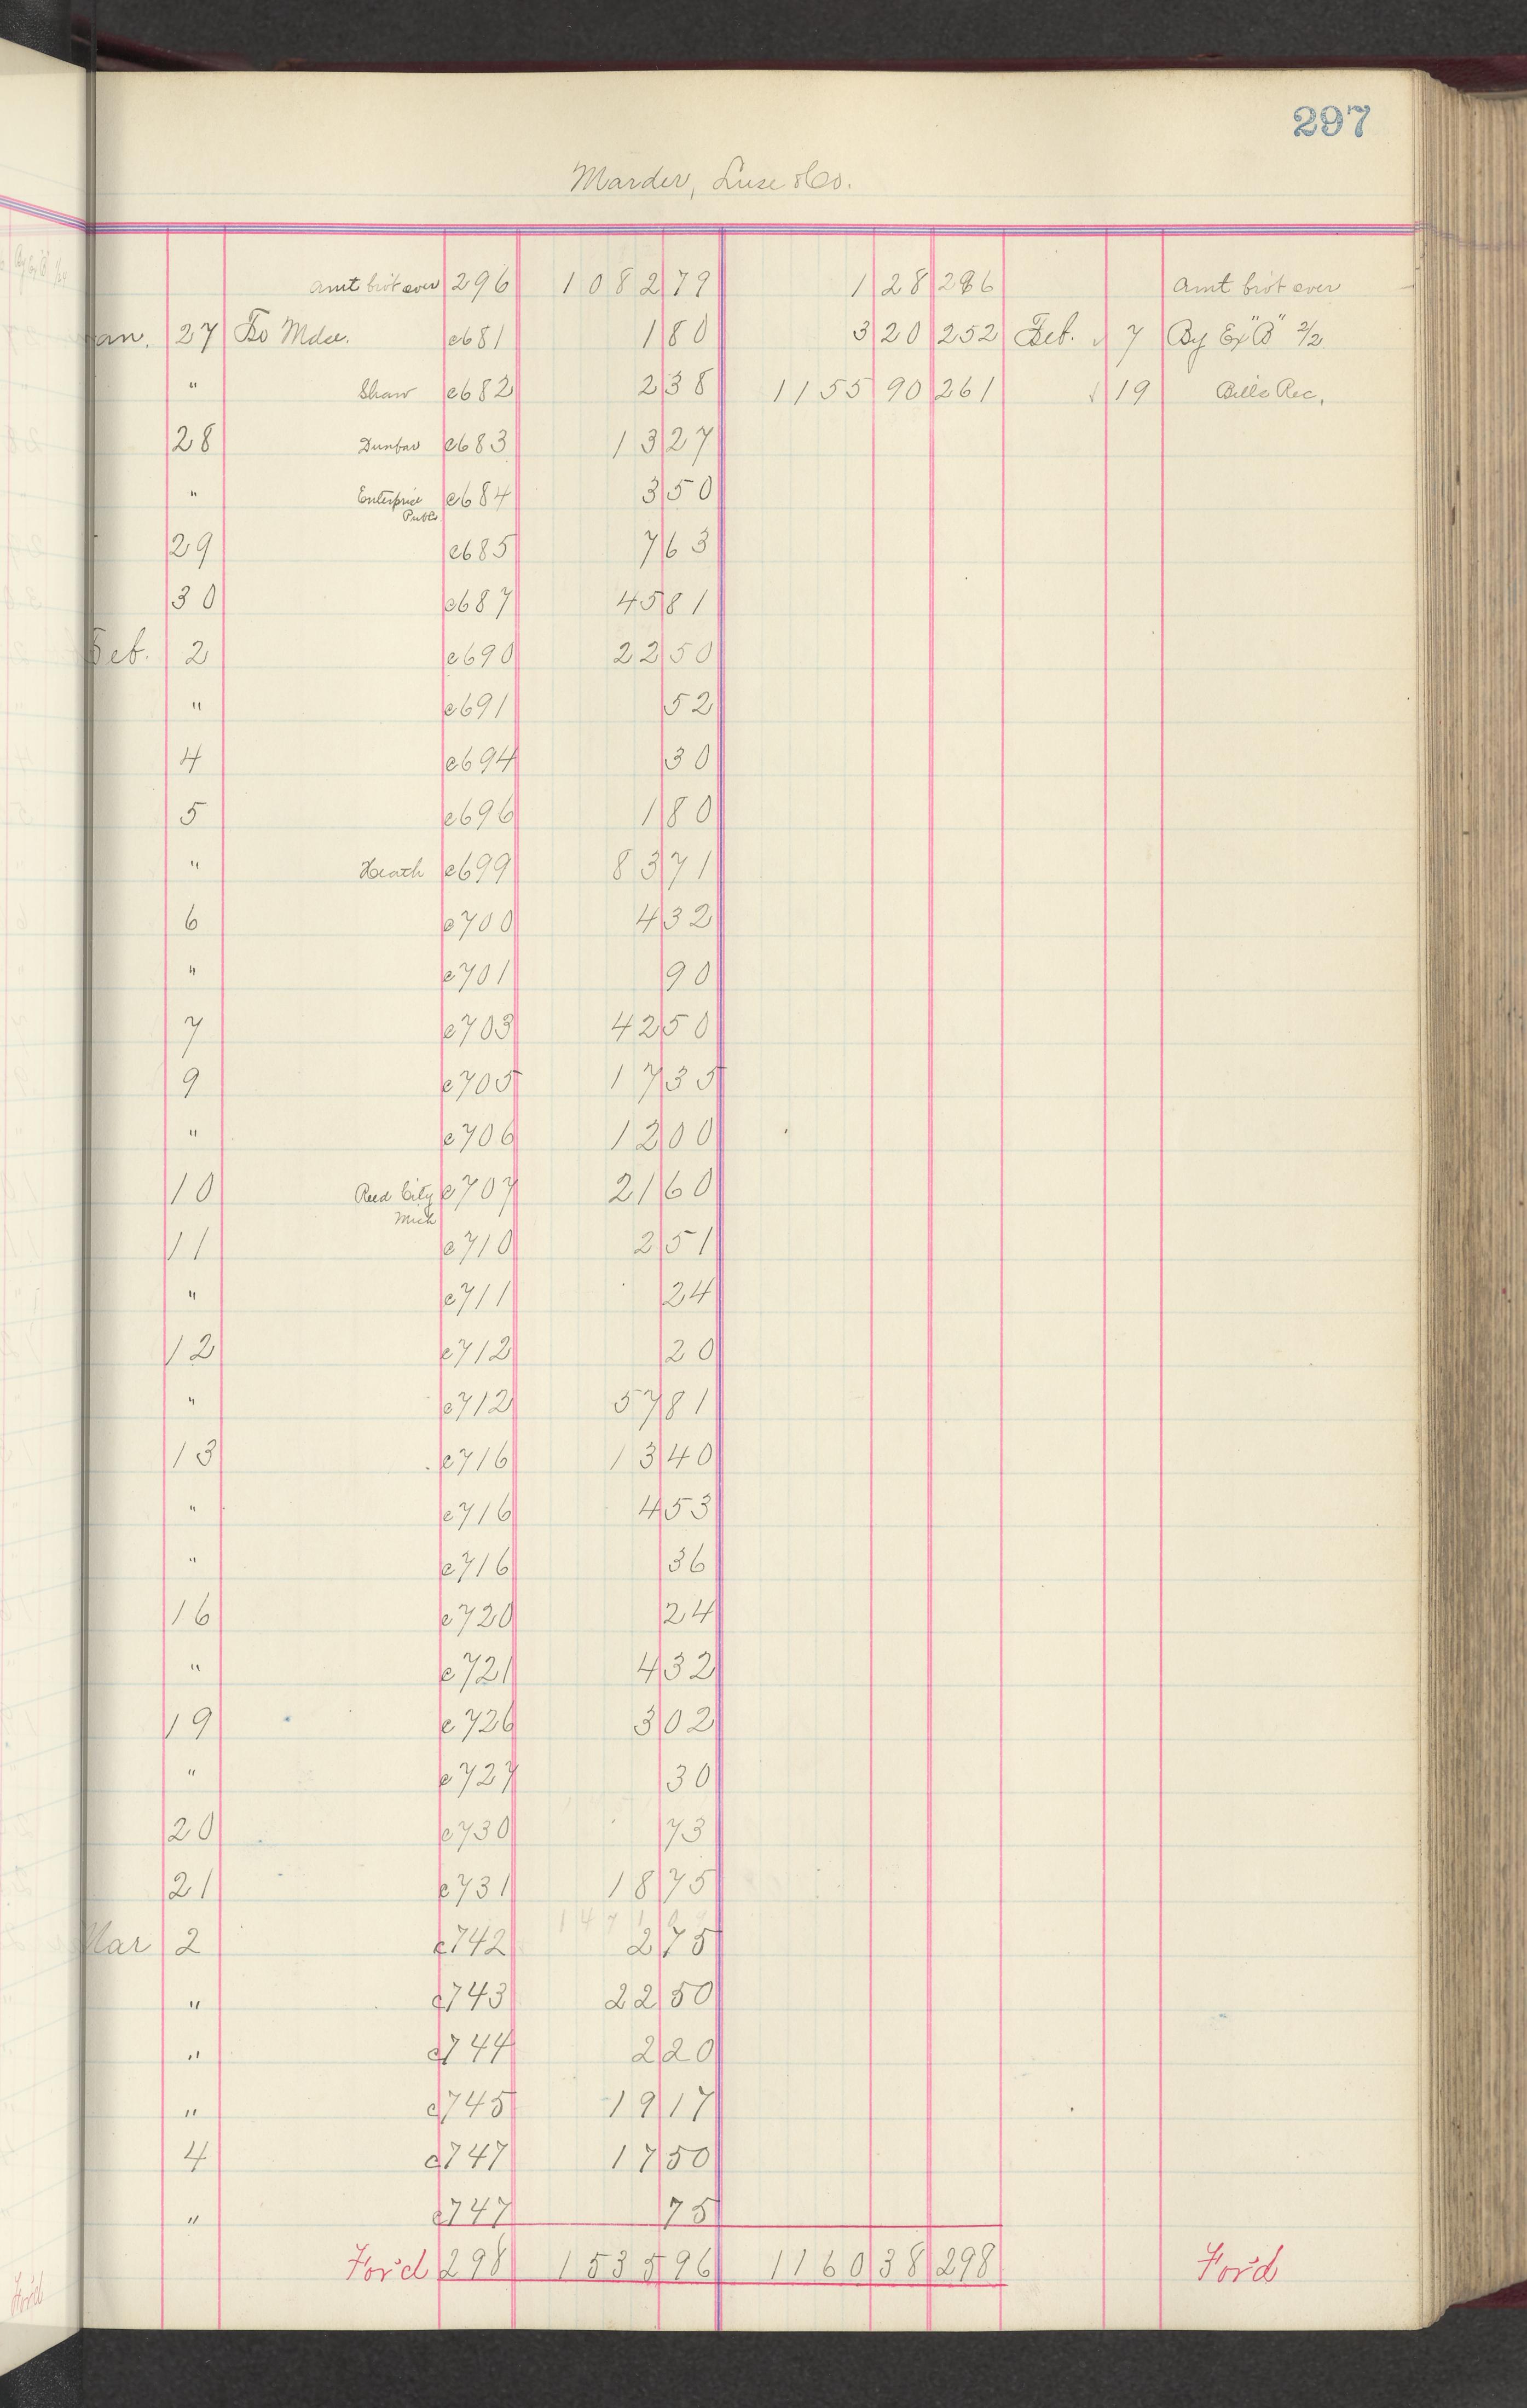 297
Marder, Luse & Co.
Amt bro't over 296 1082 79 1 28 296 Amt bro't over
an. 27 To Mdse. c681 1 80 3 20 252 Feb. √ 7 By Ex "B" 2/2
" Shaw c682 2 38 1155 90 261 √ 19 Bills Rec.
28 Dunbar c683 13 27
" Enterprise Publ. c684 3 50
29 c685 7 63
30 c687 45 81
Feb. 2 c690 22 50
" c691 52
4 c694 30
5 c696 1 80
" Heath c699 83 71
6 c700 4 32
" c701 90
7 c703 42 50
9 c705 17 35
" c706 12 00
10 Reed City Mich c707 21 60
11 c710 2 51
" c711 24
12 c712 20
" c712 57 81
13 c716 13 40
" c716 4 53
" c716 36
16 c720 24
" c721 4 32
19 c726 3 02
" c727 30
20 c730 73
21 c731 18 75
Mar 2 c742 2 75
" c743 22 50
" c744 2 20
" c745 19 17
4 c747 17 50
" c747 75
For'd 298 1535 96 1160 38 298 For'd